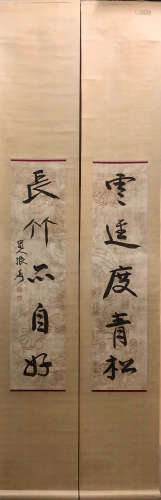 雲逕度青松
長竹亦自好